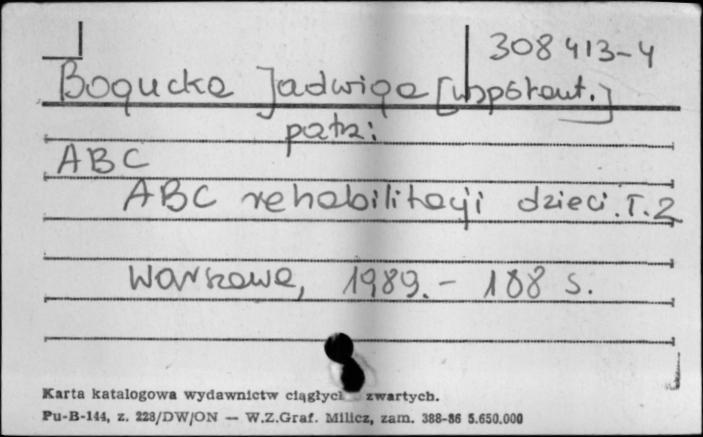 308 413-4
Bogucka Jadwiga [współaut.]
patrz:
ABC
ABC rehabilitacji dzieci. T.2
Warszawa, 1989. - 188 s.
Karta katalogowa wydawnictw ciągłych zwartych.
Pu-B-144, z. 228/DW/ON — W.Z.Graf. Milicz, zam. 388-86 5.650.000